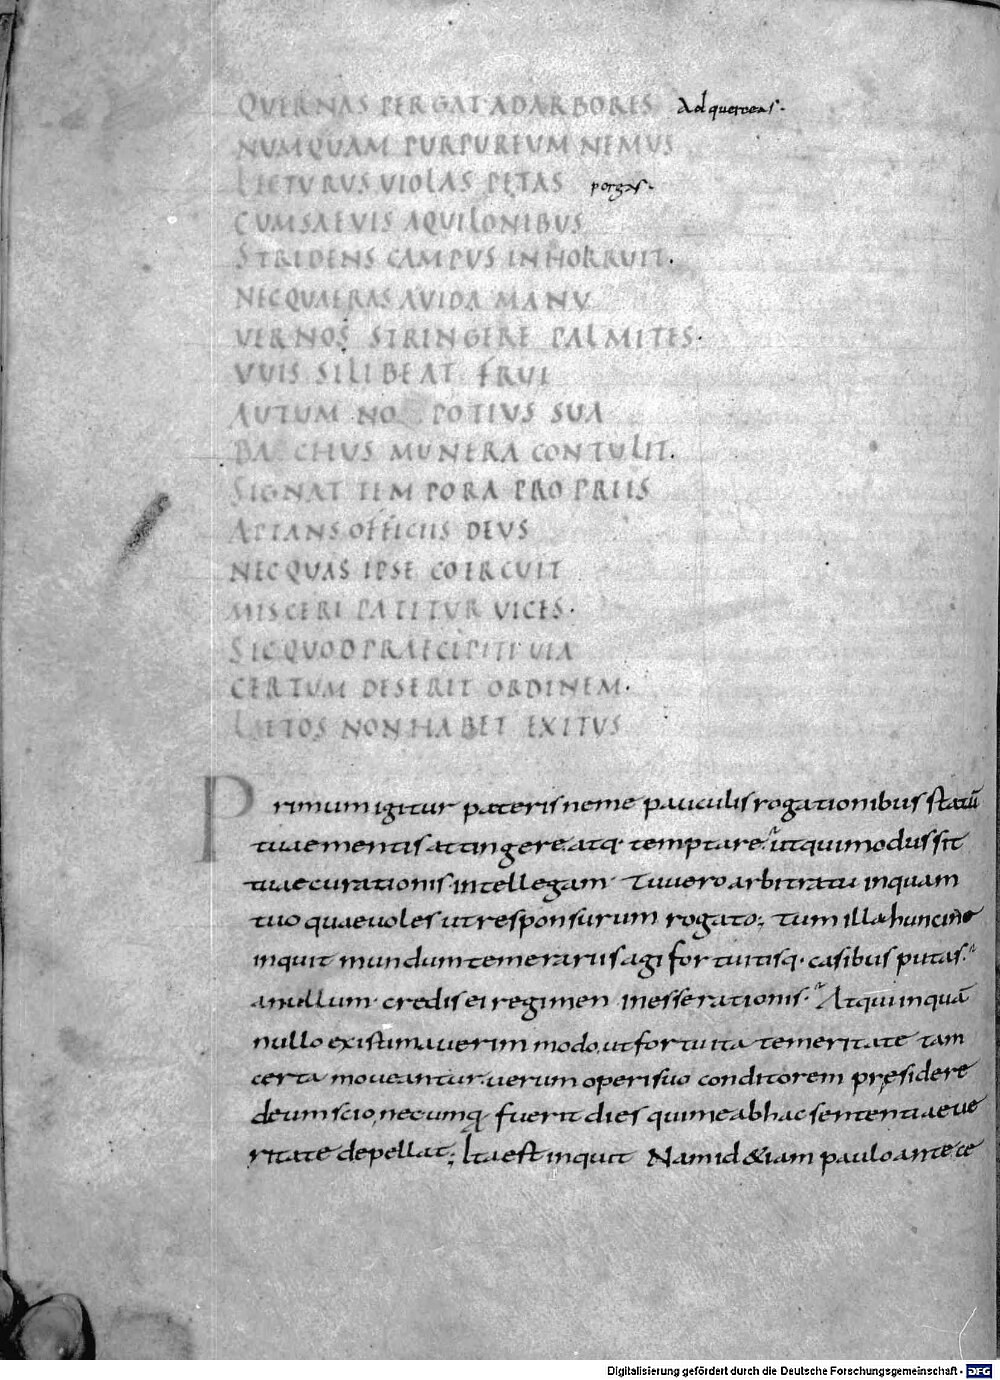 QUERNAS PERGAT AD ARBORES Ad querceas.
NUMQUAM PURPUREUM NEMUS
LECTURUS VIOLAS PETAS pergas.
CUM SAEVIS AQUILONIBUS
STRIDENS CAMPUS INHORRUIT.
NEC QUAERAS AVIDA MANU
VERNOS STRINGERE PALMITES.
VVIS SI LIBEAT FRUI
AUTUMNO POTIUS SUA
BACCHUS MUNERA CONTULIT.
SIGNAT TEMPORA PROPRIIS
APTANS OFFICIIS DEUS
NEC QUAS IPSE COERCUIT
MISCERI PATITUR VICES.
SIC QUOD PRAECIPITI VIA
CERTUM DESERIT ORDINEM.
LAETOS NON HABET EXITUS
Primum igitur paterisne me pauculis rogationibus statū
tuae mentis attingere atq· temptare ut qui modus sit
tuae curationis intellegam· Tu vero arbitratu inquam
tuo quae voles ut responsurum rogato; tum illa huncine
inquit mundum temerariis agi fortuitisq· casibus putas.
an ullum· credis ei regimen inesse rationis· Atqui inquā
nullo existimaverim modo, ut fortuita temeritate tam
certa moveantur. verum operi suo conditorem pręsidere
deum scio, nec umq̄ fuerit dies qui me ab hac sententiae ve
ritate depellat; Ita est inquit Nam id &iam paulo ante te
Digitalisierung gefördert durch die Deutsche Forschungsgemeinschaft - DFG